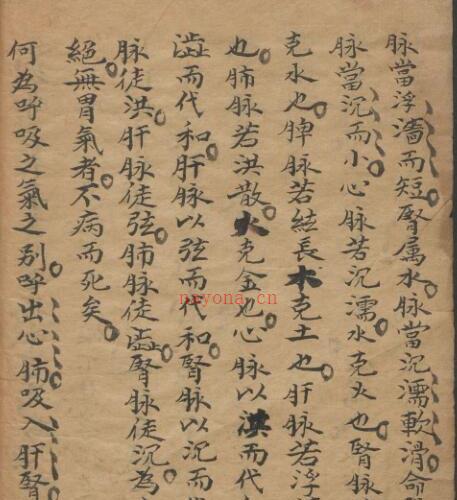 脉當浮濇而短腎属水脉當沉濡軟滑命
脉當沉而小心脉若沉濡水克火也腎脉
克水也脾脉若結長木克土也肝脉若浮
也肺脉若洪散火克金也心脉以洪而代
澁而代和肝脉以弦而代和腎脉以沉而
脉徒洪肝脉徒弦肺脉徒澁腎脉徒沉為
絕無胃氣者不病而死矣
何為呼吸之氣之别呼出心肺吸入肝腎
nxyona.cn